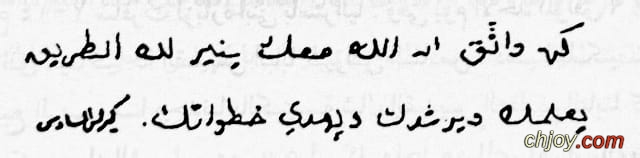 كن واثق ان الله معك ينير لك الطريق
يعلمك ويرشدك ويهدي خطواتك. كيرلس السادس
chjoy.com